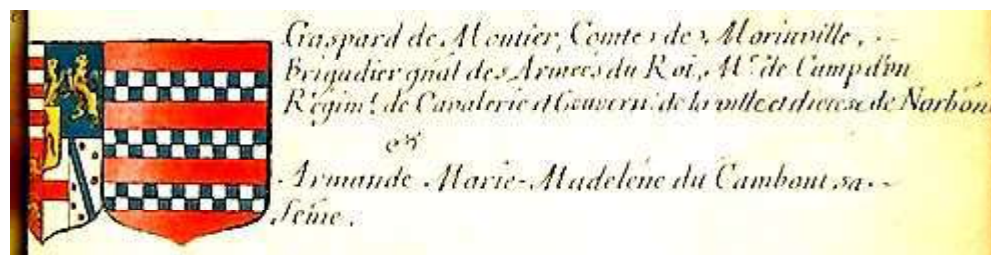 Gaspard de Moutier, Comte de Morinville,
Brigadier gñal des Armees du Roi, Mᵉ de Camp d'un
Régimᵗ de Cavalerie et Gouvernʳ de la ville et diocese de Narbon
et
Armande Marie-Madelene du Cambout sa
feme.